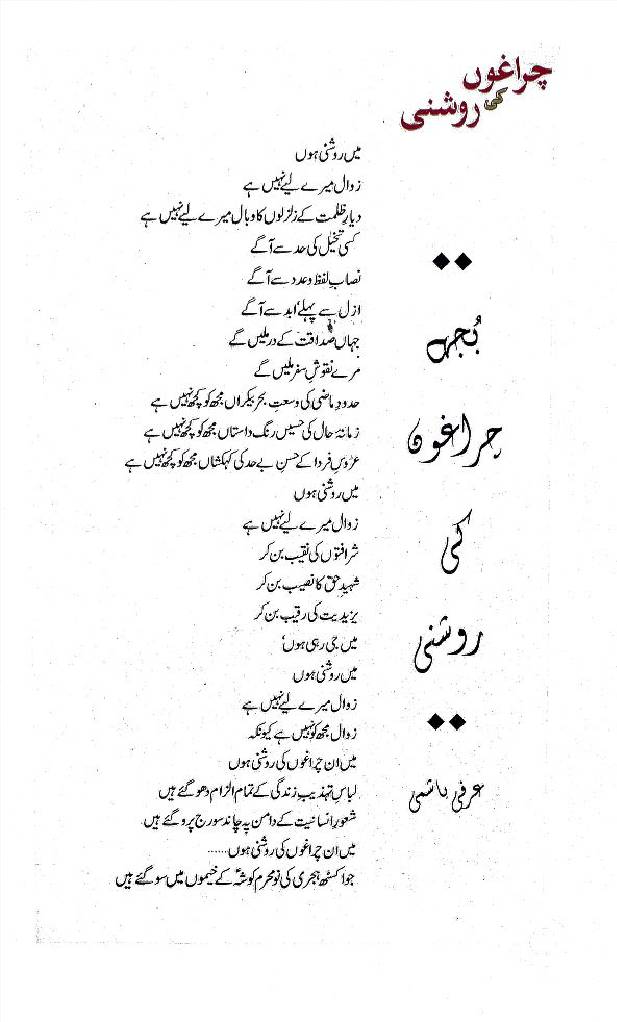 چراغوں
کی روشنی
میں روشنی ہوں
زوال میرے لیے نہیں ہے
دیارِ ظلمت کے زلزلوں کا وبال میرے لیے نہیں ہے
کسی تخیل کی حد سے آگے
نصابِ لفظ و عدد سے آگے
ازل سے پہلے' ابد سے آگے
جہاں صداقت کے در ملیں گے
مرے نقوشِ سفر ملیں گے
حدودِ ماضی کی وسعتِ بحرِ بیکراں مجھ کو کچھ نہیں ہے
زمانۂ حال کی حسیں رنگ داستاں مجھ کو کچھ نہیں ہے
عروسِ فردا کے حسنِ بے حد کی کہکشاں مجھ کو کچھ نہیں ہے
میں روشنی ہوں
زوال میرے لیے نہیں ہے
شرافتوں کی نقیب بن کر
شہیدِ حق کا نصیب بن کر
یزیدیت کی رقیب بن کر
میں جی رہی ہوں'
میں روشنی ہوں
زوال میرے لیے نہیں ہے
زوال مجھ کو نہیں ہے کیونکہ
میں ان چراغوں کی روشنی ہوں
لباسِ تہذیبِ زندگی کے تمام الزام دھو گئے ہیں
شعورِ انسانیت کے دامن پہ چاند سورج پرو گئے ہیں
میں ان چراغوں کی روشنی ہوں......
جو اکسٹھ ہجری کی نو محرم کو شہؑ کے خیموں میں سو گئے ہیں
بُجھے
چراغوں
کی
روشنی
عرفی ہاشمی